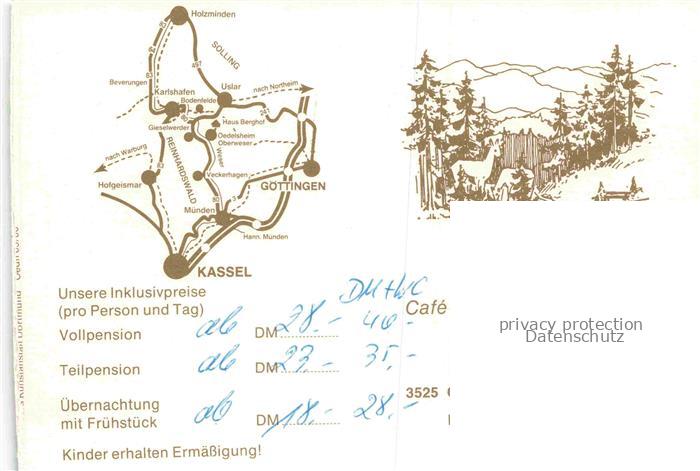 Holzminden
83
83
497
SOLLING
Beverungen
Karlshafen
Bodenfelde
Uslar
nach Northeim
80
241
Haus Berghof
Gieselwerder
Oedelsheim
Oberweser
nach Warburg
83
REINHARDSWALD
Weser
Veckerhagen
GÖTTINGEN
Hofgeismar
80
3
Münden
Hann. Münden
KASSEL
Unsere Inklusivpreise
(pro Person und Tag)
DM+WC
Vollpension ab DM 28.- 40.-
Teilpension ab DM 23.- 35.-
Übernachtung
mit Frühstück ab DM 18.- 28.-
Kinder erhalten Ermäßigung!
Café
3525
privacy protection
Datenschutz